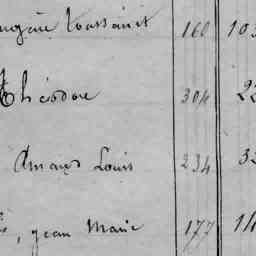 Toussaint 160 103
Théodore 304 22
Amand Louis 234 32
, jean Marie 177 14